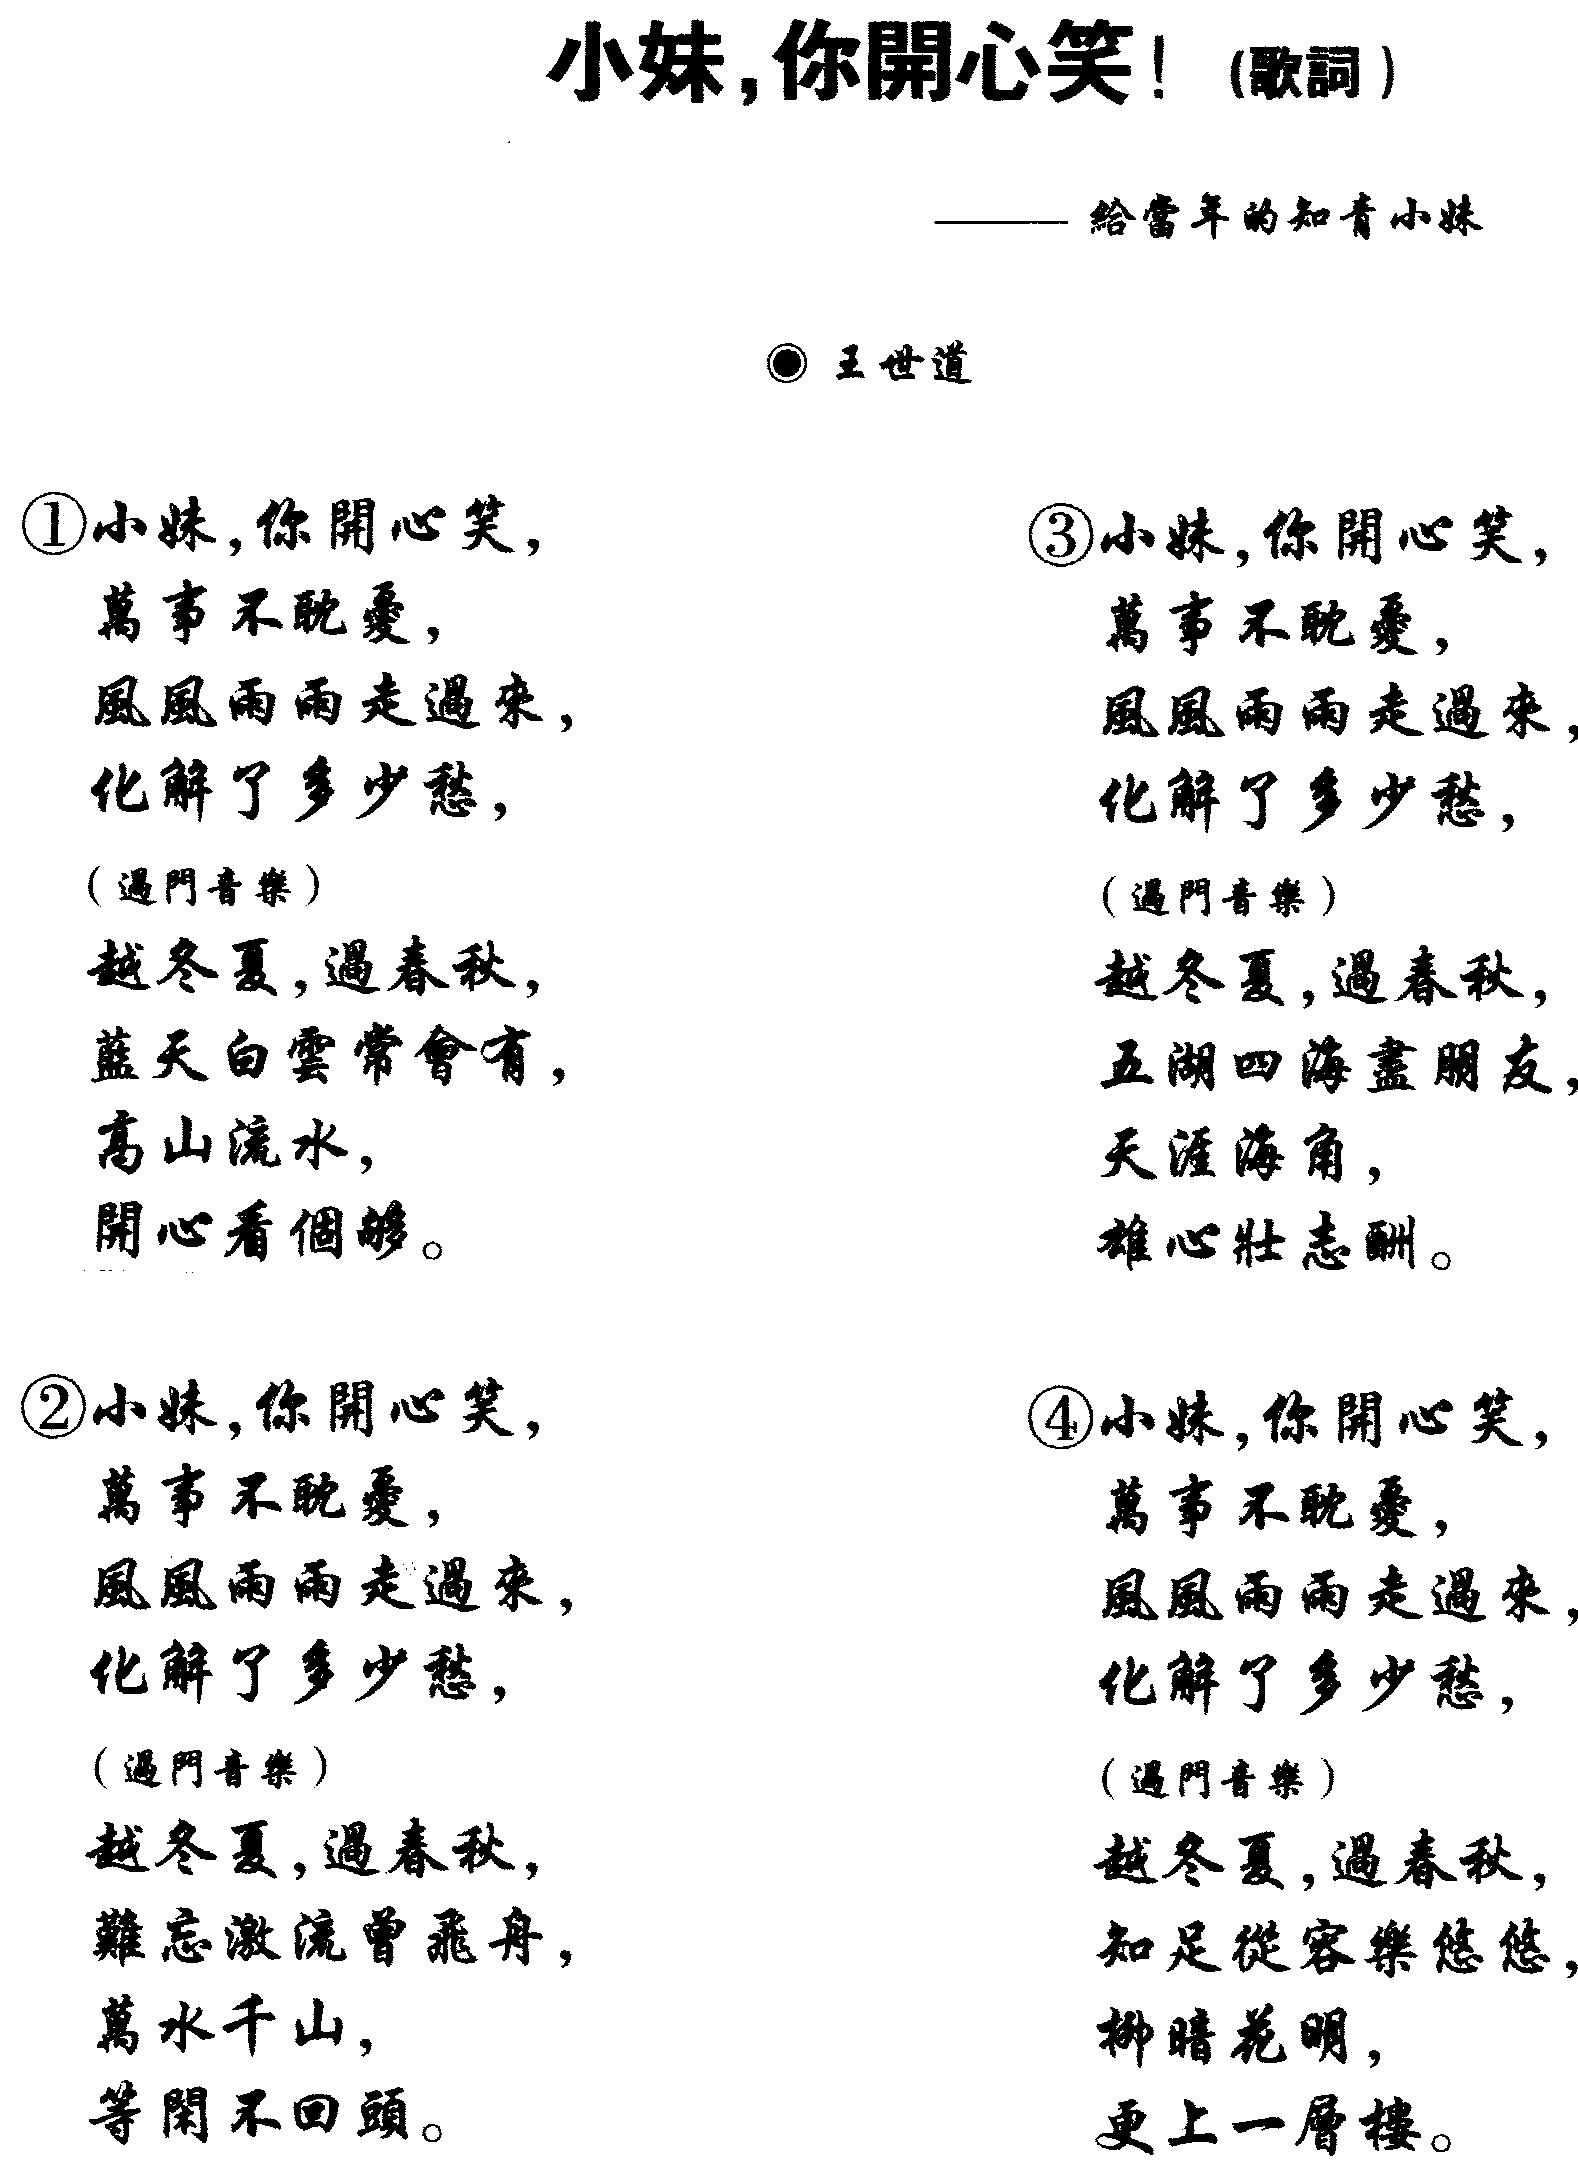 小妹，你開心笑！（歌詞）
——給當年的知青小妹
◉ 王世道
①小妹，你開心笑，
萬事不耽憂，
風風雨雨走過來，
化解了多少愁，
（過門音樂）
越冬夏，過春秋，
藍天白雲常會有，
高山流水，
開心看個够。
②小妹，你開心笑，
萬事不耽憂，
風風雨雨走過來，
化解了多少愁，
（過門音樂）
越冬夏，過春秋，
難忘激流曾飛舟，
萬水千山，
等閑不回頭。
③小妹，你開心笑，
萬事不耽憂，
風風雨雨走過來，
化解了多少愁，
（過門音樂）
越冬夏，過春秋，
五湖四海盡朋友，
天涯海角，
雄心壯志酬。
④小妹，你開心笑，
萬事不耽憂，
風風雨雨走過來，
化解了多少愁，
（過門音樂）
越冬夏，過春秋，
知足從容樂悠悠，
柳暗花明，
更上一層樓。